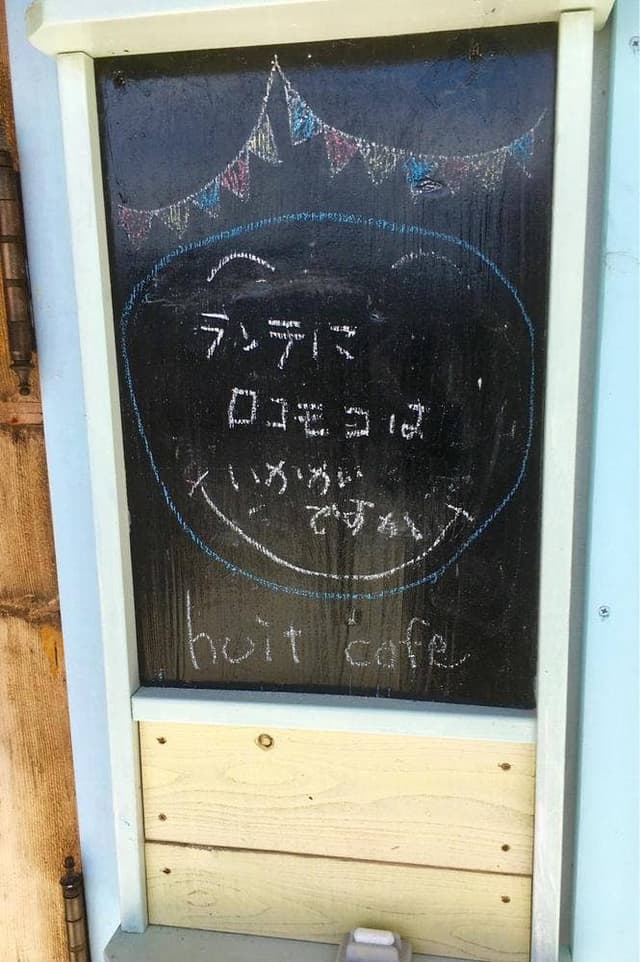 ランチに
ロコモコは
いかがい
ですか
huit cafe